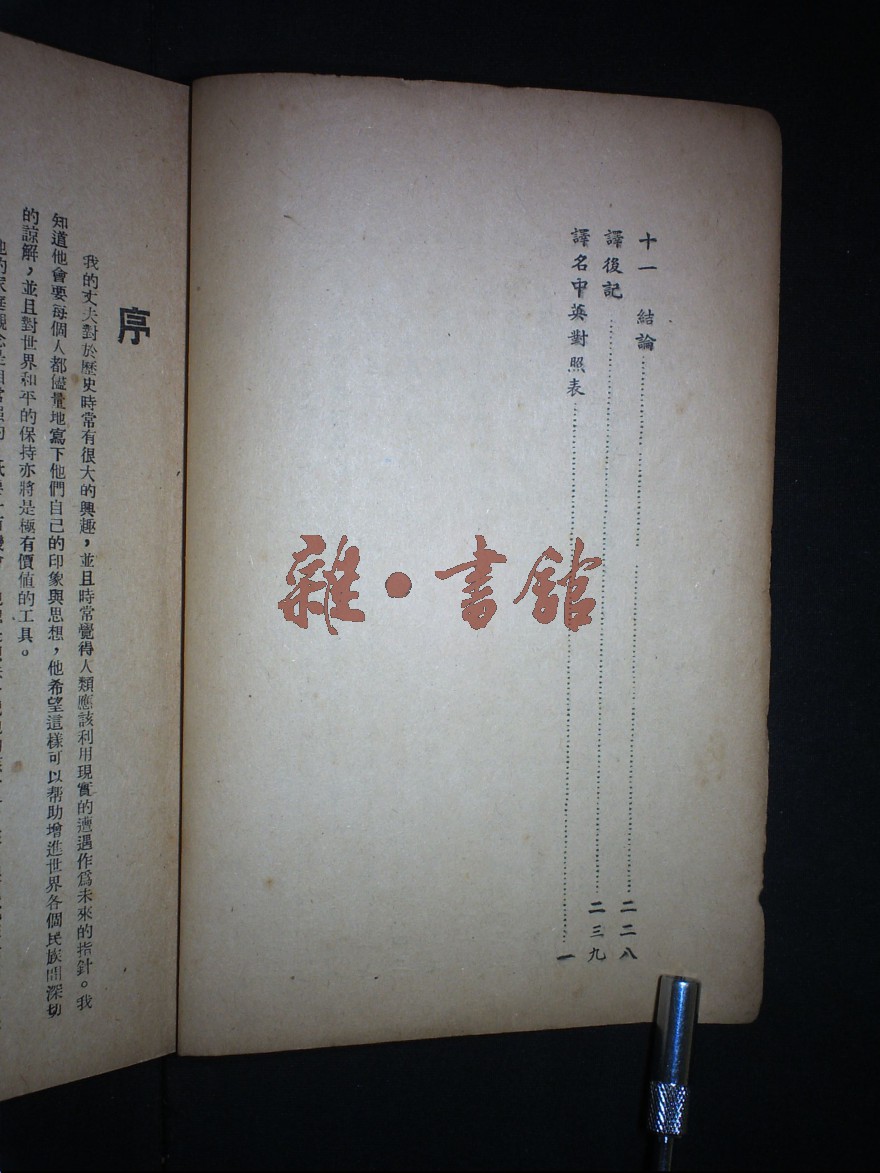 十一 結論 二二八
譯後記 二三九
譯名中英對照表 一
序
我的丈夫對於歷史時常有很大的興趣，並且時常覺得人類應該利用現實的遭遇作爲未來的指針。我
知道他會要每個人都儘量地寫下他們自己的印象與思想，他希望這樣可以帮助增進世界各個民族間深切
的諒解，並且對世界和平的保持亦將是極有價值的工具。
雜•書館